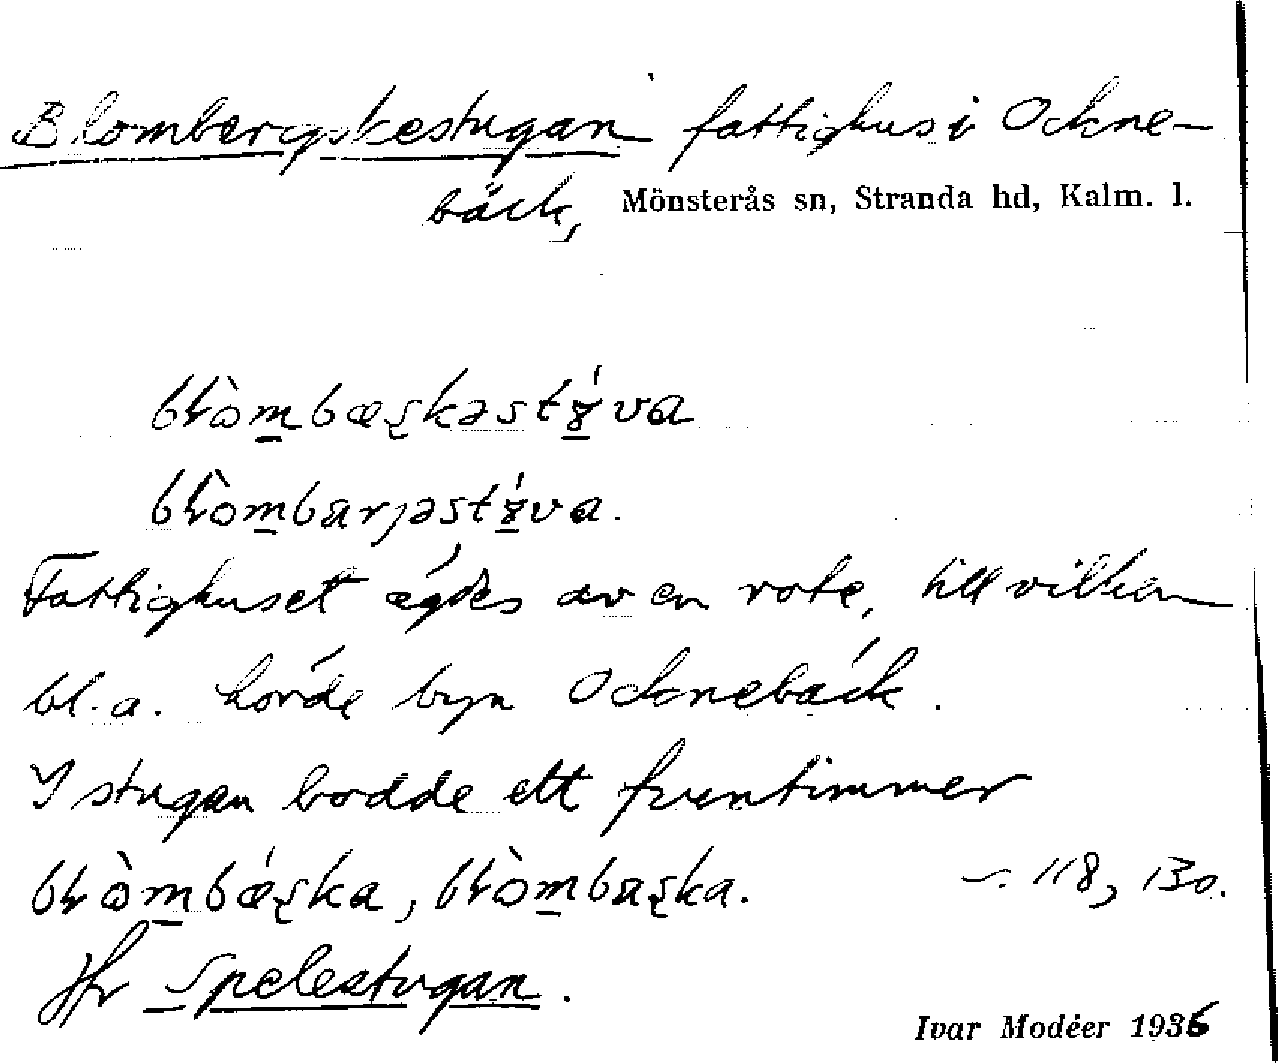 Blombergskestugan fattighus i Ockne-
bäck, Mönsterås sn, Stranda hd, Kalm. l.
Fattighuset ägdes av en rote, till vilken
bl.a. hörde byn Ocknebäck.
I stugan bodde ett fruntimmer
s. 118, 130.
Jfr Spelestugan.
Ivar Modéer 1936